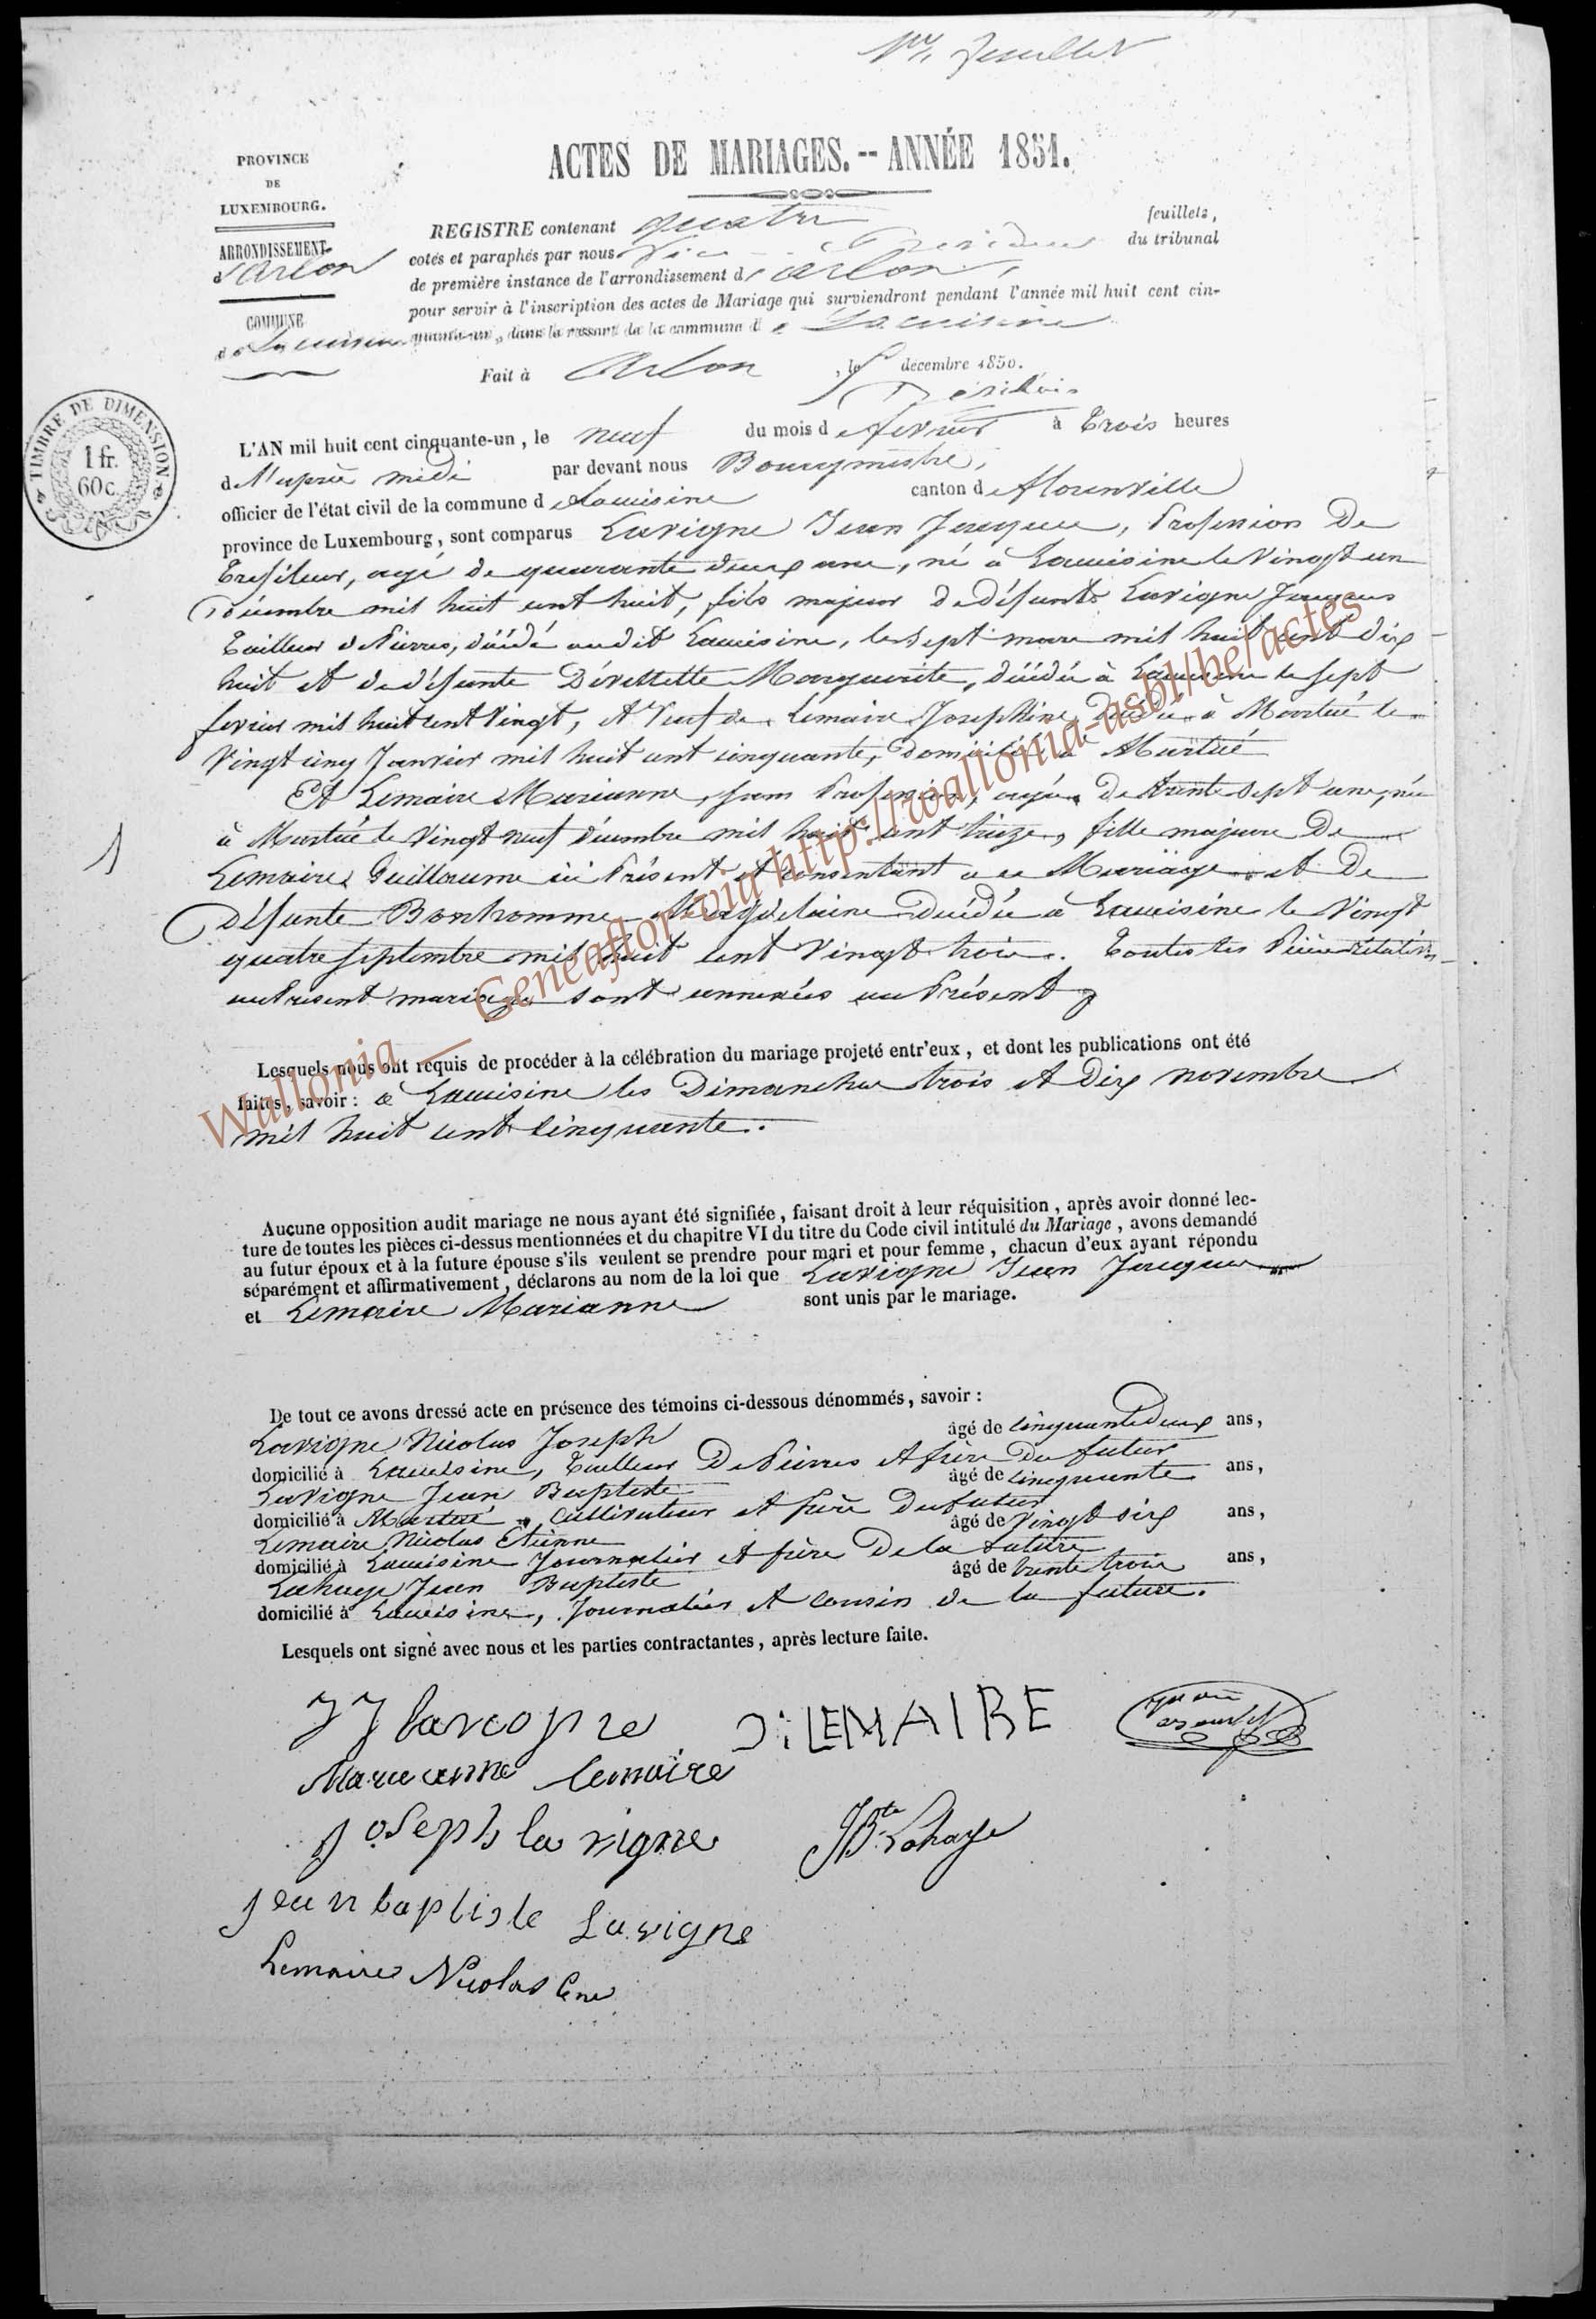 1er feuillet
ACTES DE MARIAGES. -- ANNÉE 1851.
PROVINCE
DE
LUXEMBOURG.
ARRONDISSEMENT
d'Arlon
COMMUNE
de Lacuisine
REGISTRE contenant quatre feuillets,
cotés et paraphés par nous Vice Président du tribunal
de première instance de l'arrondissement d'Arlon,
pour servir à l'inscription des actes de Mariage qui surviendront pendant l'année mil huit cent cin-
quante-un, dans le ressort de la commune de Lacuisine
Fait à Arlon, le décembre 1850.
TIMBRE DE DIMENSION
1 fr.
60 c.
L'AN mil huit cent cinquante-un, le neuf du mois de fevrier à trois heures
de l'après midi par devant nous Bourgmestre,
officier de l'état civil de la commune de Lacuisine canton de florenville
province de Luxembourg, sont comparus Lavigne Jean Jacques, Profession De
trefileur, agé de quarante deux ans, né à Lacuisine le Vingt un
Décembre mil huit cent huit, fils majeur De défunts Lavigne Jacques
tailleur de Pierres, décédé audit Lacuisine, le sept mars mil huit cent dix
huit et de défunte Marguerite, décédée à Lacuisine le sept
fevrier mil huit cent Vingt, et Veuf de Lemaire Josephine, Décédée à Martué le
Vingt cinq Janvier mil huit cent cinquante, Domicilié à Martué
1
Et Lemaire Marianne, sans Profession, agée De trente sept ans, née
à Martué le Vingt neuf décembre mil huit cent treize, fille majeure De
Lemaire Guillaume ici Présent et consentant a ce Mariage et De
Défunte Bonhomme décédée à Lacuisine le Vingt
quatre septembre mil huit cent Vingt trois. Toutes les Pièces relatives
au Présent mariage sont annexées au Présent
Lesquels nous ont requis de procéder à la célébration du mariage projeté entr'eux, et dont les publications ont été
faites, savoir : à Lacuisine les Dimanches trois et Dix novembre
mil huit cent cinquante.
Aucune opposition audit mariage ne nous ayant été signifiée, faisant droit à leur réquisition, après avoir donné lec-
ture de toutes les pièces ci-dessus mentionnées et du chapitre VI du titre du Code civil intitulé du Mariage, avons demandé
au futur époux et à la future épouse s'ils veulent se prendre pour mari et pour femme, chacun d'eux ayant répondu
séparément et affirmativement, déclarons au nom de la loi que Lavigne Jean Jacques
et Lemaire Marianne sont unis par le mariage.
De tout ce avons dressé acte en présence des témoins ci-dessous dénommés, savoir :
Lavigne Nicolas Joseph âgé de cinquante deux ans,
domicilié à Lacuisine, tailleur De Pierres et frère Du futur
Lavigne Jean Baptiste âgé de cinquante ans,
domicilié à Martué, Cultivateur et frère Du futur
Lemaire Nicolas Etienne âgé de Vingt six ans,
domicilié à Lacuisine Journalier et frère De la future
Lahaye Jean Baptiste âgé de trente trois ans,
domicilié à Lacuisine, Journalier et cousin de la future.
Lesquels ont signé avec nous et les parties contractantes, après lecture faite.
J J lavigne
LEMAIRE
Marie anne lemaire
joseph la vigne
JBte Lahaye
jean baptiste Lavigne
Lemaire Nicolas
Wallonia — Geneaflor via http://wallonia-asbl/be/actes